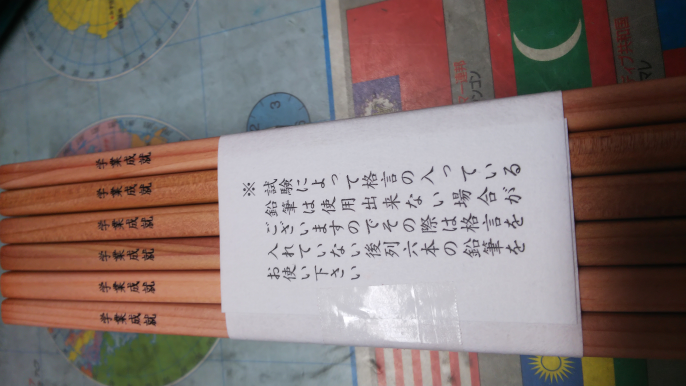 ※試験によって格言の入っている
鉛筆は使用出来ない場合が
ございますのでその際は格言を
入れていない後列六本の鉛筆を
お使い下さい
学業成就
学業成就
学業成就
学業成就
学業成就
学業成就